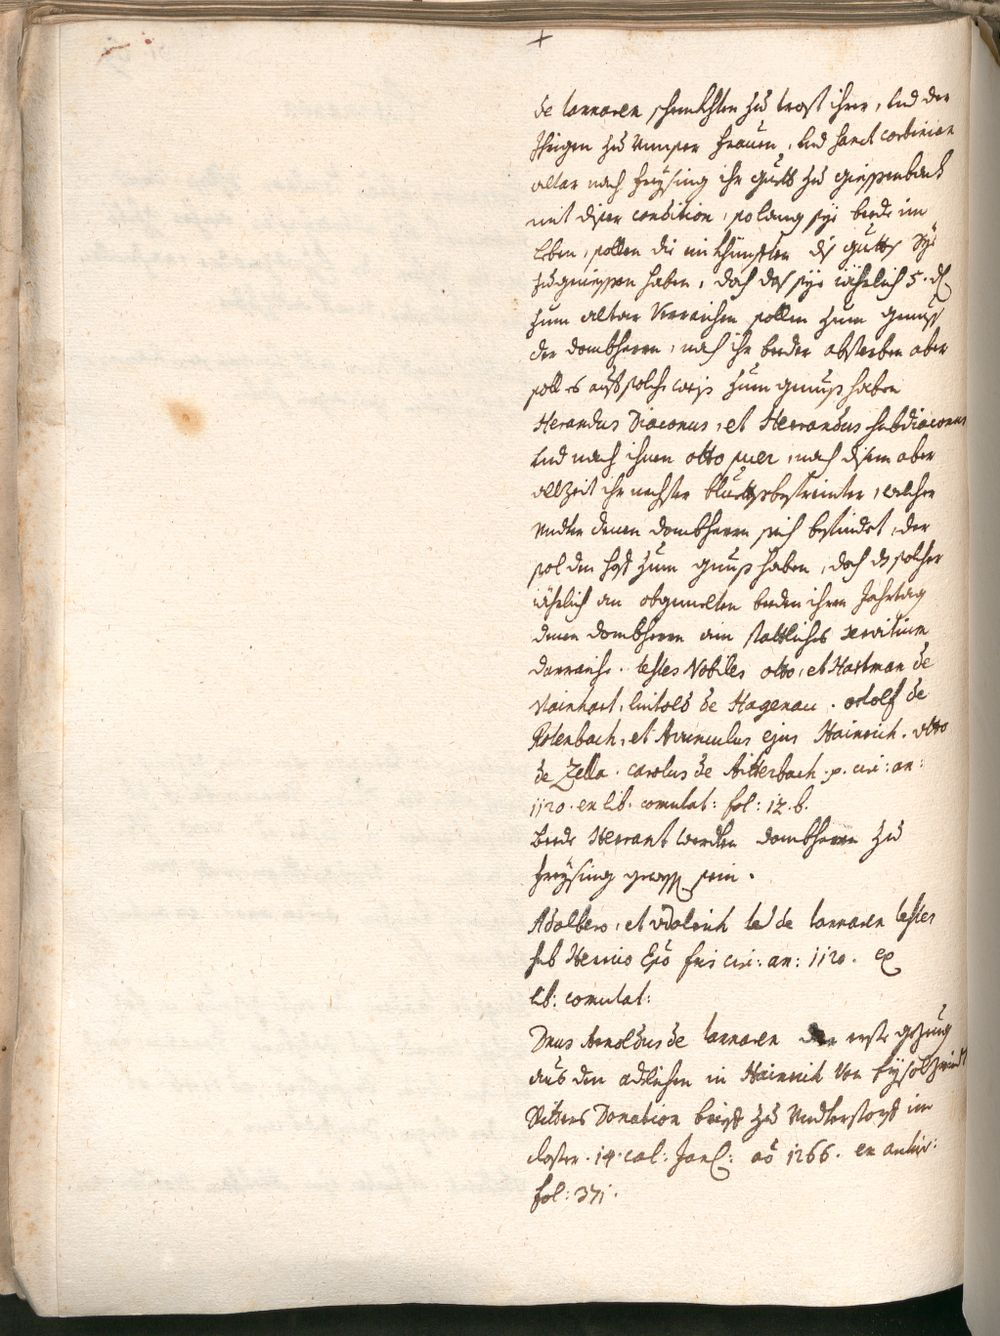 +
de tannaren schenkhten zu trost ihrer, und der
Ihrigen zu Unnser Frauen, und Sanct Corbinian
altar nach Freysing ihr Guett zu Giessenbach
mit diser condition, so lang sye beede im
Leben, sollen die einkhünfften dis Guetts Sye
zugeniessen haben, doch das sye iährlich 5. dl
zum altar Verreichen sollen zum genuss
der dombherrn, nach ihr beeder absterben aber
soll es auf solche weiss zum genuss haben
Herandus Diaconus, et Herrandus subdiaconus
und nach ihnen otto puer, nach disem aber
allzeit ihr nechster bluettsbefreinter, welcher
under denen dombherrn sich befindet, der
sol den hoff zum gnuss haben, doch ds solcher
iährlich an obgemelten beeden ihren Jahrtag
denen dombherrn ein stattliches servitium
darraiche. testes Nobiles otto, et Hartman de
Mainhart, liutold de Hagenau. ortolf de
Rotenbach, et Avunculus ejus Hainrich. otto
de Zella. carolus de Aitterbach. p. cir: an:
1120. ex lib. comutat: fol: 12. b.
beede Herrant werden dombherrn zu
Freysing gewest sein.
Adalbero, et Udalrich de tannaren testes
sub Henrico Epo fris cir: an: 1120. ex
lib: comutat:
Dnus Arnoldus de tannaren der erste gezeug
aus den adlichen in Hainrich Von
Ritters Donation brieff zu Understorff im
closter. 14. cal: Jan: ao 1266. ex
fol: 371.